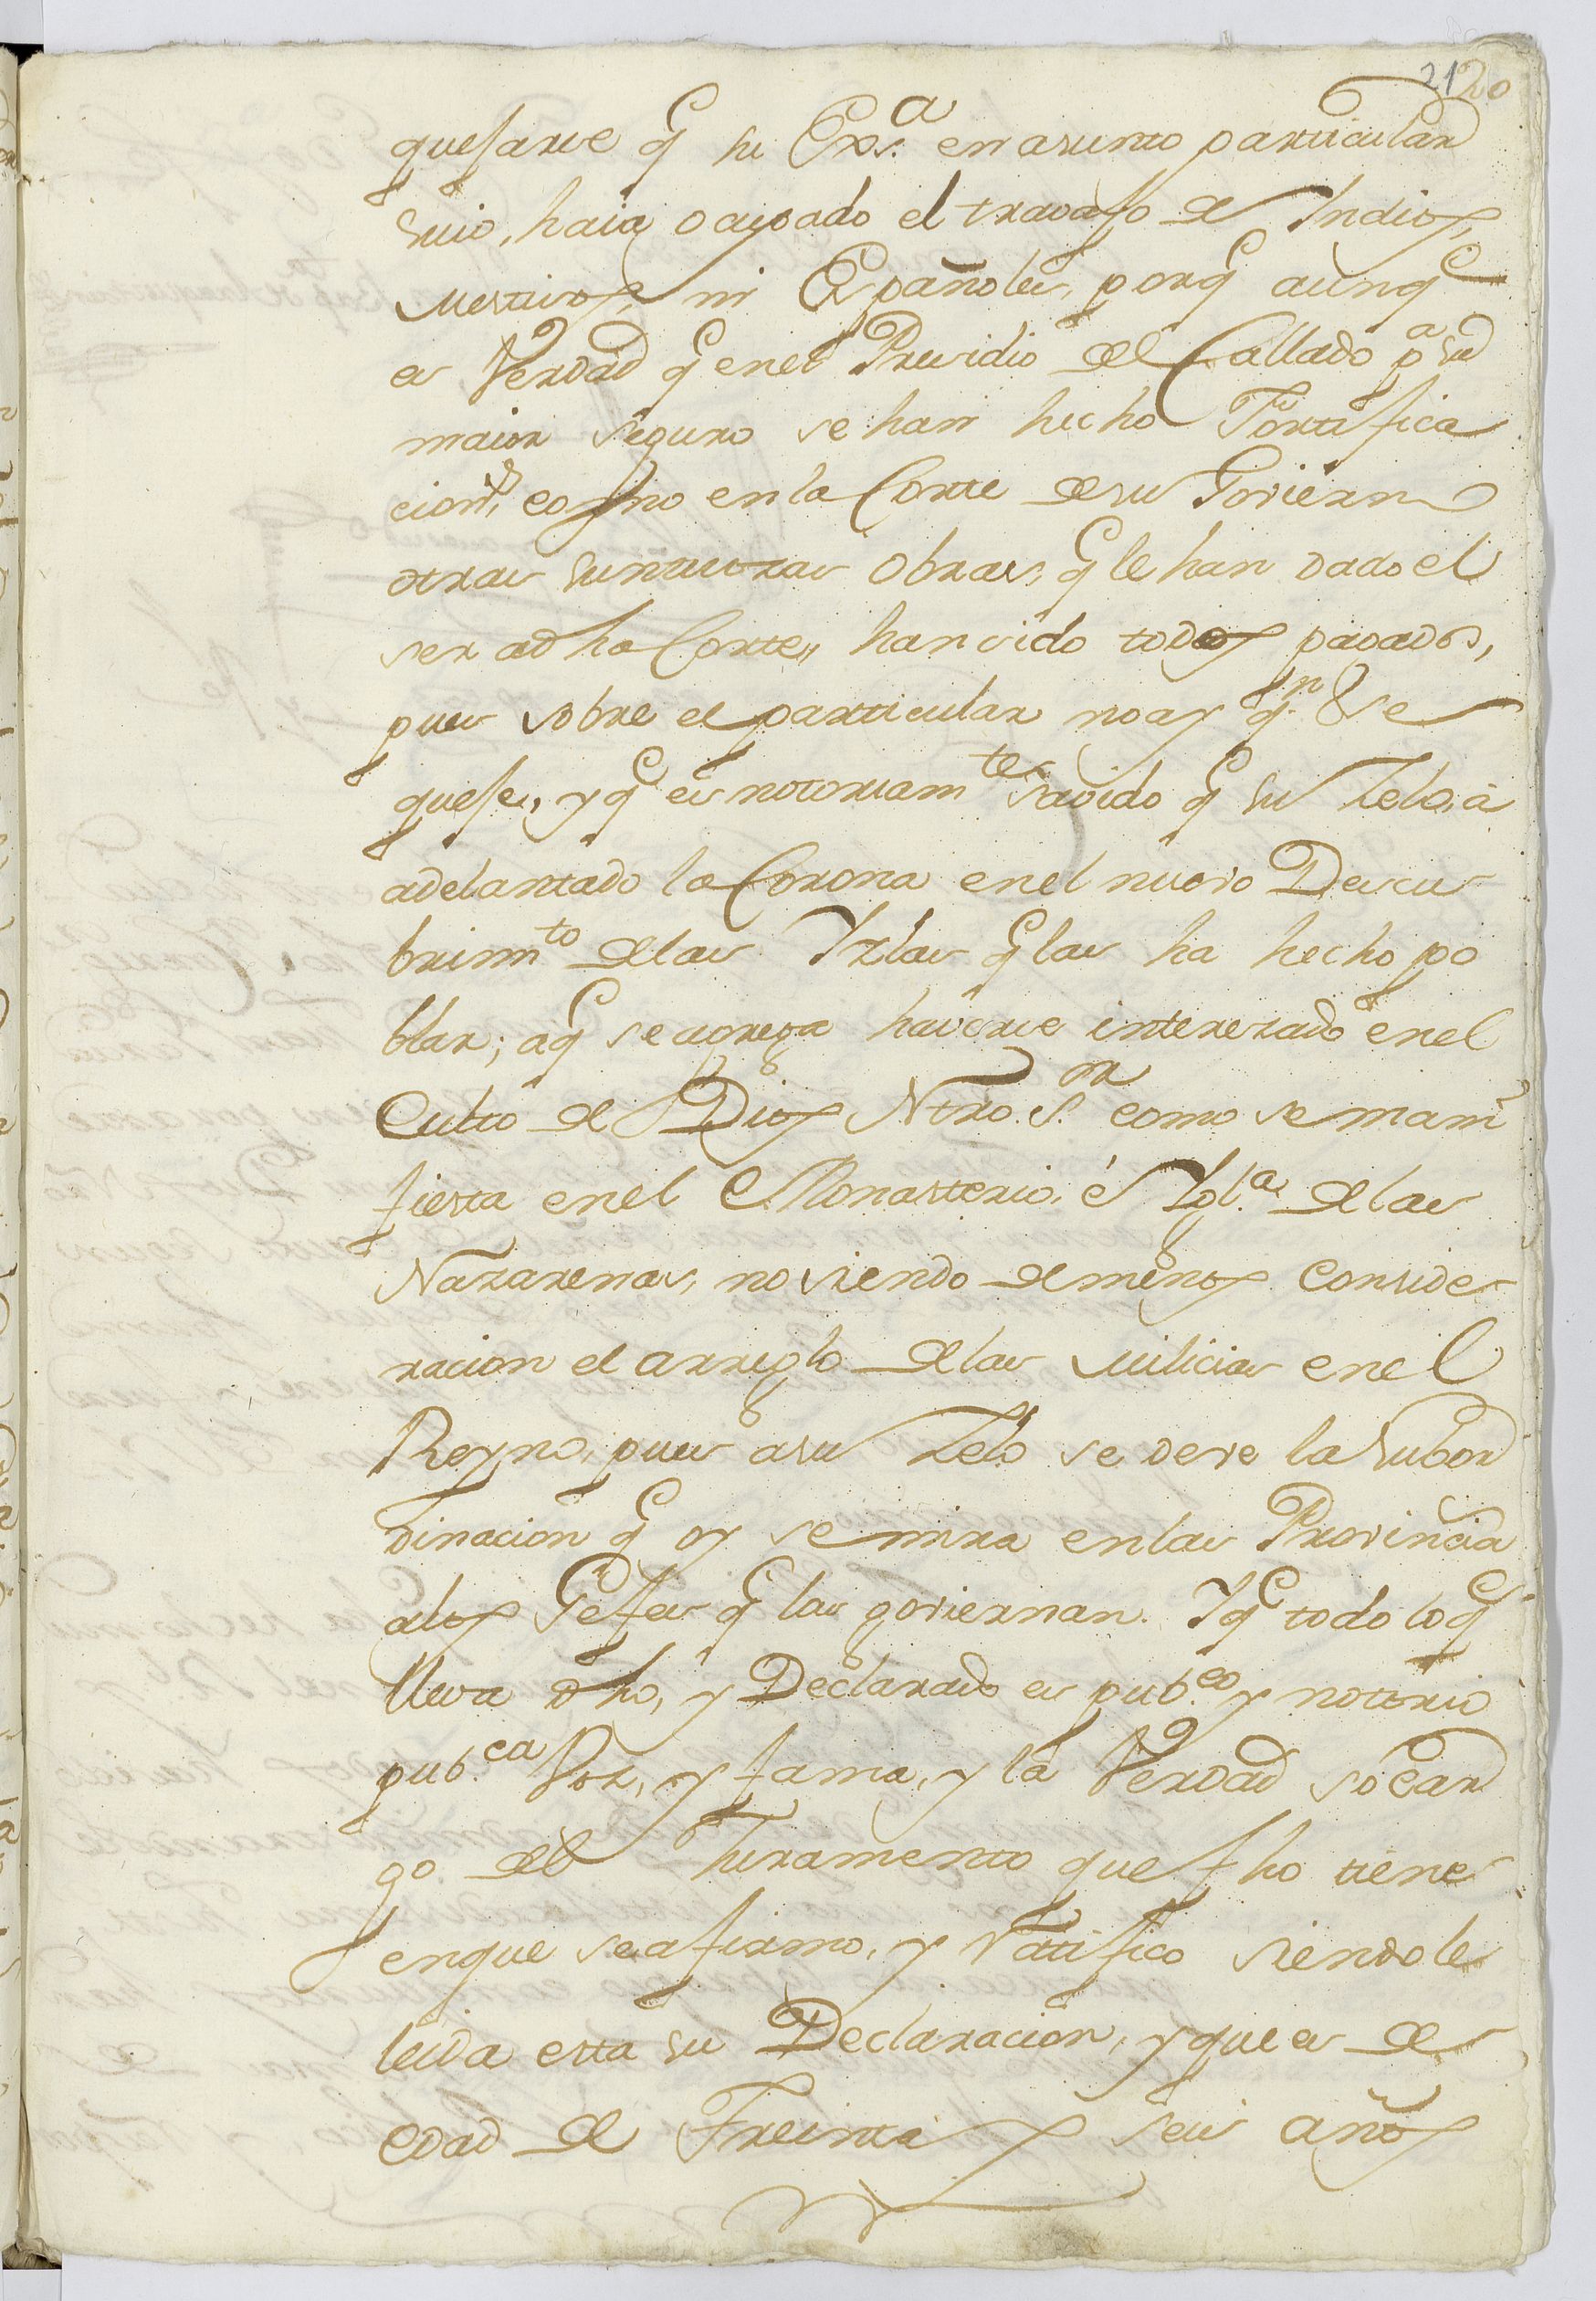 21 20
quejarse q̃ su Exs.ª en asunto particular
suio, haia ocupado el travajo de Indios,
Mestisos, ni Españoles, porq̃ aunq̃
es Verdad q̃ en el Presidio del Callado pª su
maior seguro se han hecho Fortifica
cion.s, como en la Corte de su Goviern̄o
otras suntuosas Obras, q̃ le han dado el
ser a dha Corte, han sido todos pagados,
pues sobre el particular no ay q.n se
queje, y q̃ es notoriam.te savido q̃ su Zelo, á
adelantado la Corona en el nuevo Descu
brim.to de las Yzlas q̃ las ha hecho po
blar; aq̃ se agrega haverse interezado en el
Culto de Dios Ntro. S.or como se mani
fiesta en el Monasterio, é Ygl.ª de las
Nazarenas, no siendo de menos conside
racion el arreglo de las Milicias en el
Reyno, pues a su Zelo se deve la subor
dinacion q̃ oy se mira en las Provincia
a los Gefes q̃ las goviernan. Y q̃ todo lo q̃
lleva dho, y Declarado es pub.co y notorio
pub.ca Voz, y fama, y la Verdad so car
go del Juramento que fho tiene
en que se afirmo, y ratifico siendole
leida esta su Declaracion, y que es de
edad de Treinta y seis años